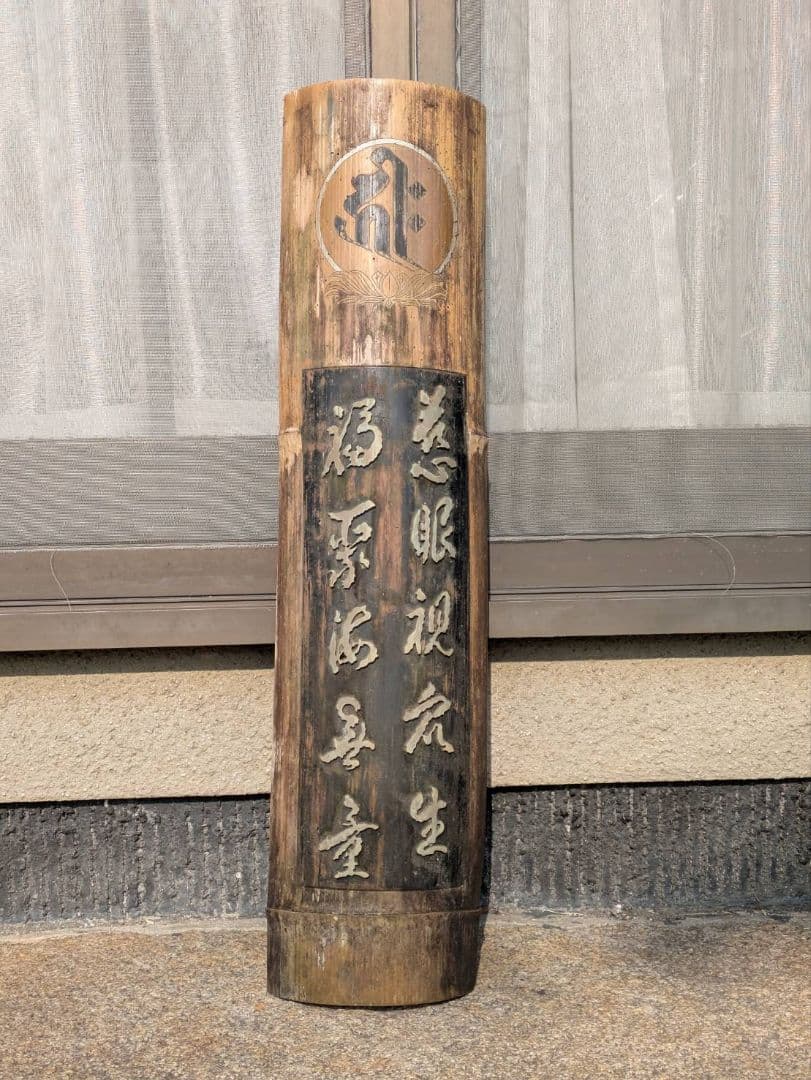 ह्रीः
慈眼視衆生
福聚海無量